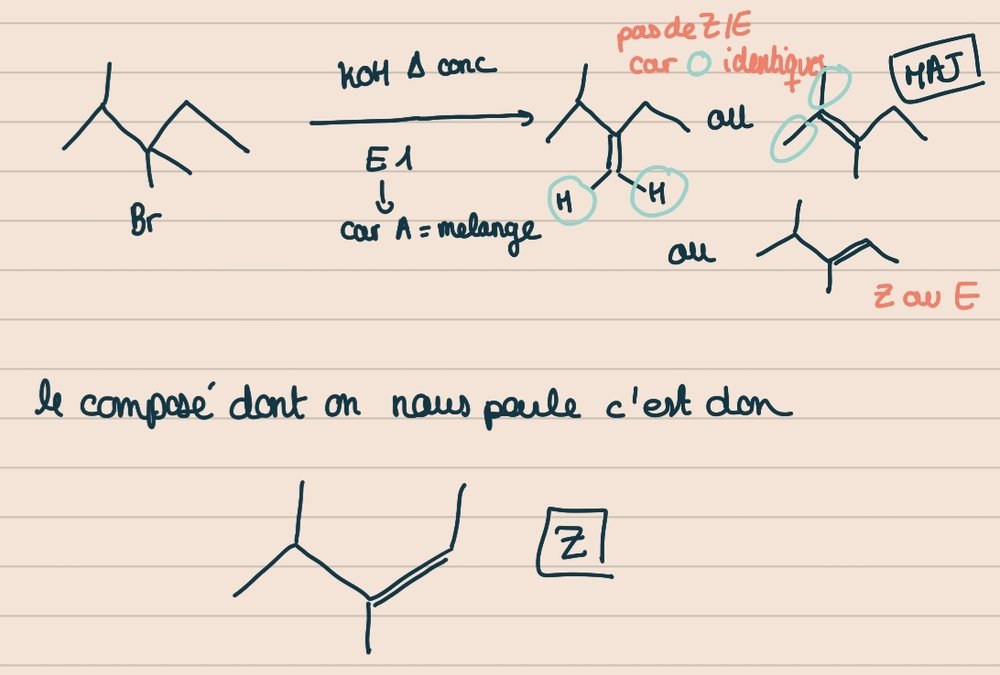 pas de Z/E
car O identiques
MAJ
KOH Δ conc
ou
E1
↓
car A = melange
H
H
Br
ou
Z ou E
le composé dont on nous paule c'est don
Z